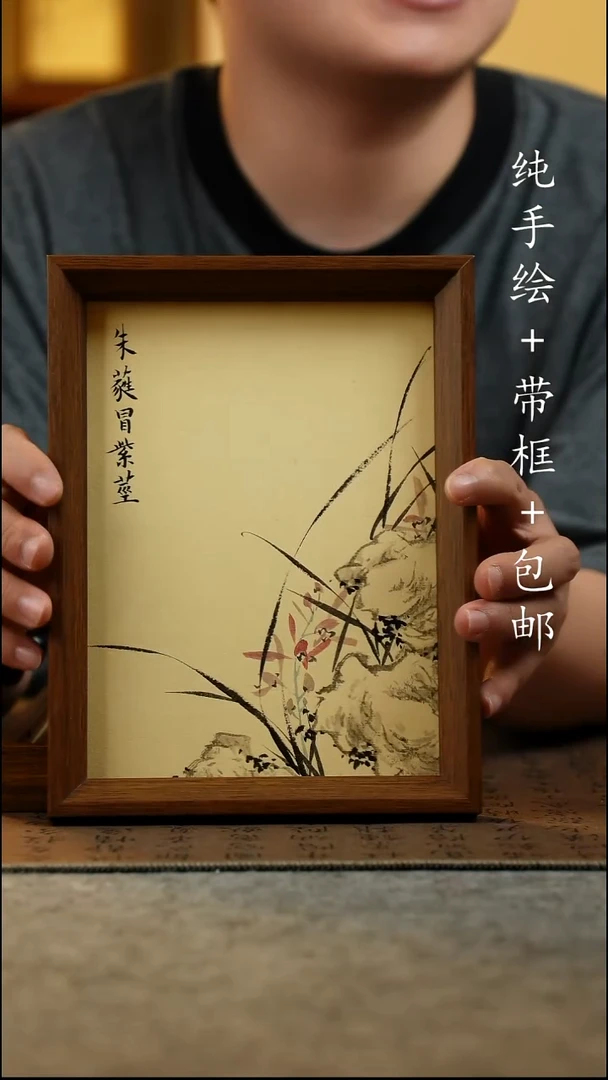 纯手绘+带框+包邮
朱蕤冒紫莖